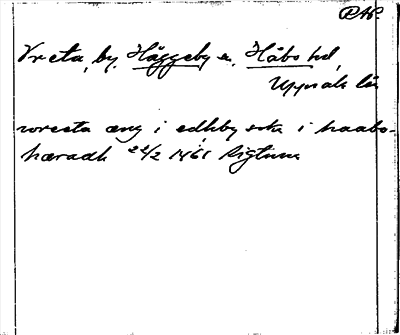 RAP.
Vreta, by, Häggeby sn, Håbo hd,
Uppsala län
wreeta æng i edhby sokn i haabo-
hæradh 22/2 1461 Sigtuna